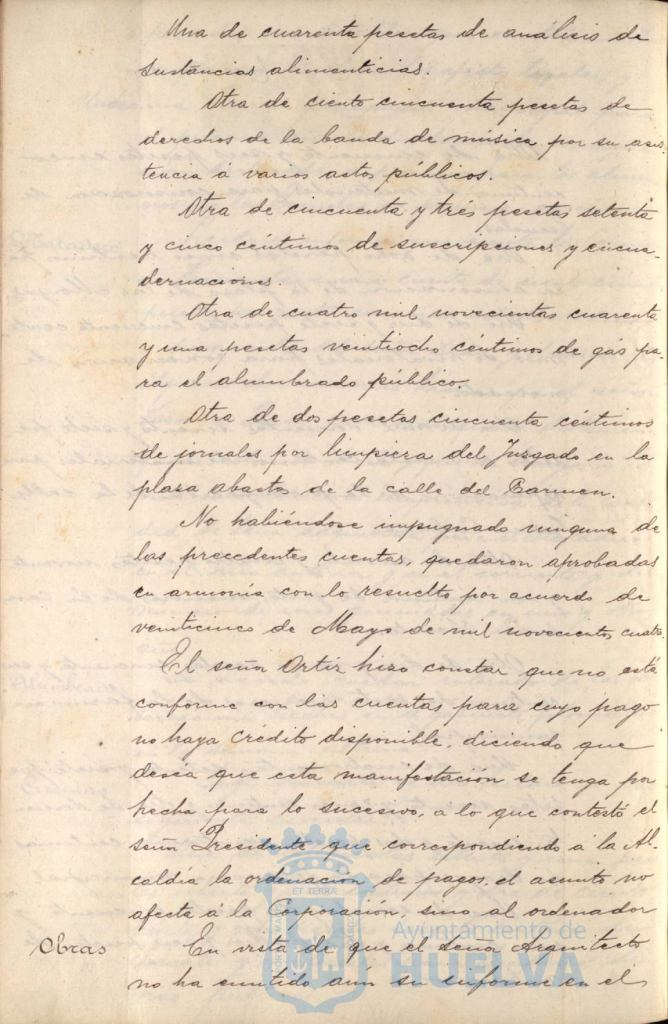 Una de cuarenta pesetas de análisis de
sustancias alimenticias.
Otra de ciento cincuenta pesetas de
derechos de la banda de música por su asis-
tencia á varios actos públicos.
Otra de cincuenta y trés pesetas setenta
y cinco céntimos de suscripciones y encua-
dernaciones.
Otra de cuatro mil novecientas cuarenta
y una pesetas veintiocho céntimos de gás pa-
ra el alumbrado público.
Otra de dos pesetas cincuenta céntimos
de jornales por limpieza del Juzgado en la
plaza abastos de la calle del Carmen.
No habiéndose impugnado ninguna de
las precedentes cuentas, quedaron aprobadas
en armonía con lo resuelto por acuerdo de
veinticinco de Mayo de mil novecientos cuatro.
El señor Ortiz hizo constar que no está
conforme con las cuentas para cuyo pago
no haya crédito disponible, diciendo que
desea que esta manifestación se tenga por
hecha para lo sucesivo, a lo que contestó el
señor Presidente que correspondiendo á la Al-
caldía la ordenación de pagos, el asunto no
afecta á la Corporación, sino al ordenador
Obras En vista de que el señor Arquitecto
no ha emitido aún su informe en el
ET TERRA
Ayuntamiento de
HUELVA